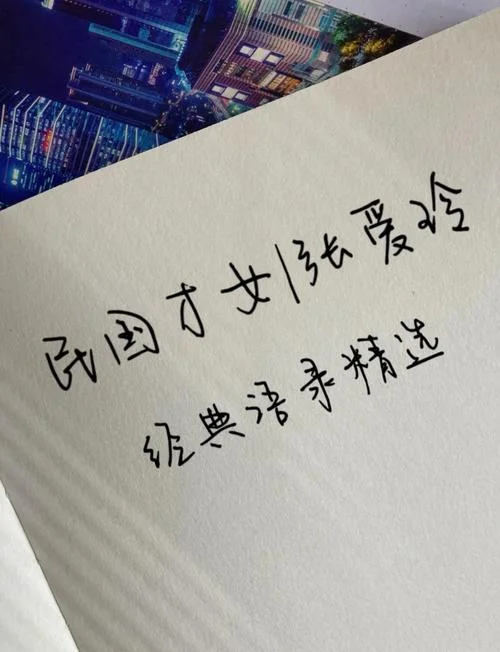 民国才女|张爱玲
经典语录精选